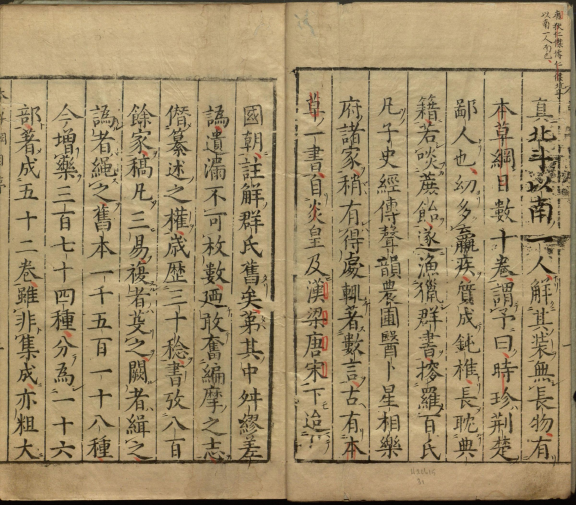 真北斗以南一人解其装無長物有
本草綱目數十卷謂予曰時珍荆楚
鄙人也幼多羸疾質成鈍椎長耽典
籍若啖蔗飴遂漁獵群書搜羅百氏
凡子史經傳聲韻農圃醫卜星相樂
府諸家稍有得處輒著數言古有本
草一書自炎皇及漢梁唐宋下迨
國朝註解群氏舊矣第其中舛繆差
譌遺漏不可枚數廼敢奮編摩之志
僭纂述之權歲歷三十稔書攷八百
餘家稿凡三易複者芟之闕者緝之
譌者繩之舊本一千五百一十八種
今增藥三百七十四種分為一十六
部著成五十二卷雖非集成亦粗大